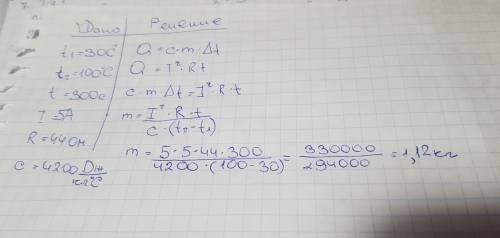 Дано Решение
t₁=30C° Q = c·m·Δt
t₂=100°C Q = I²·Rt
t=300c c·m·Δt=I²·R·t
I 5A m= I²·R·t / c·(t₂-t₁)
R=44Ом
c=4200 Дж/кг°C m = 5·5·44·300 / 4200·(100-30) = 330000 / 294000 = 1,12кг